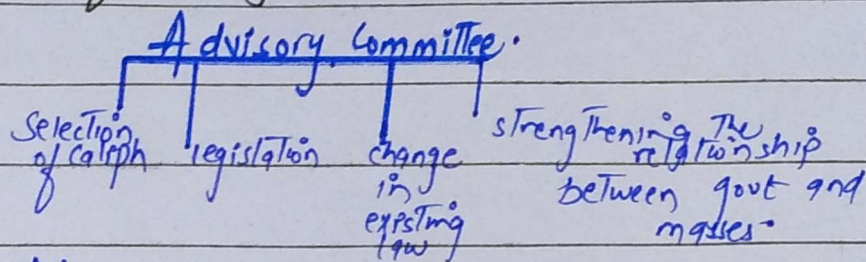 Advisory Committee.
Selection
of Caliph
legislation
change
in
existing
law
strengthening The
relationship
between govt and
masses.